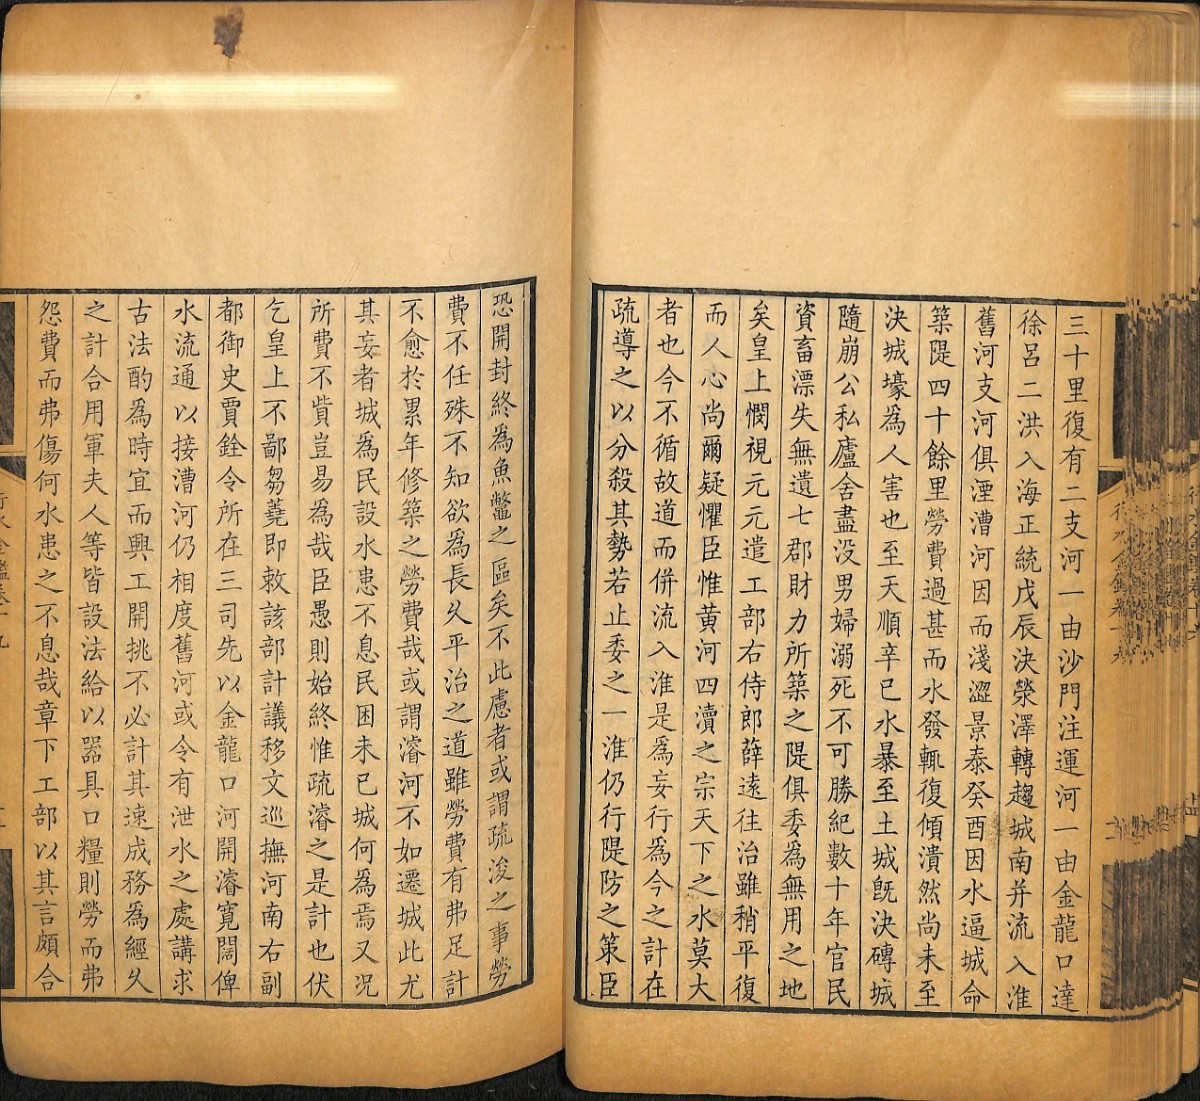 三十里復有二支河一由沙門注運河一由金龍口達
徐呂二洪入海正統戊辰決滎澤轉趨城南并流入淮
舊河支河俱湮漕河因而淺澀景泰癸酉因水逼城命
築隄四十餘里勞費過甚而水發輒復傾潰然尚未至
決城壕為人害也至天順辛巳水暴至土城旣決磚城
隨崩公私廬舍盡没男婦溺死不可勝紀數十年官民
資畜漂失無遺七郡財力所築之隄俱委為無用之地
矣皇上憫視元元遣工部右侍郎薛遠往治雖稍平復
而人心尚爾疑懼臣惟黄河四瀆之宗天下之水莫大
者也今不循故道而併流入淮是為妄行為今之計在
疏導之以分殺其勢若止委之一淮仍行隄防之策臣
恐開封終為魚鼈之區矣不此慮者或謂疏浚之事勞
費不任殊不知欲為長久平治之道雖勞費有弗足計
不愈於累年修築之勞費哉或謂濬河不如遷城此尤
其妄者城為民設水患不息民困未已城何為焉又况
所費不貲豈易為哉臣愚則始終惟疏濬之是計也伏
乞皇上不鄙芻蕘即敕該部計議移文巡撫河南右副
都御史賈銓令所在三司先以金龍口河開濬寛闊俾
水流通以接漕河仍相度舊河或令有泄水之處講求
古法酌為時宜而興工開挑不必計其速成務為經久
之計合用軍夫人等皆設法給以器具口糧則勞而弗
怨費而弗傷何水患之不息哉章下工部以其言頗合